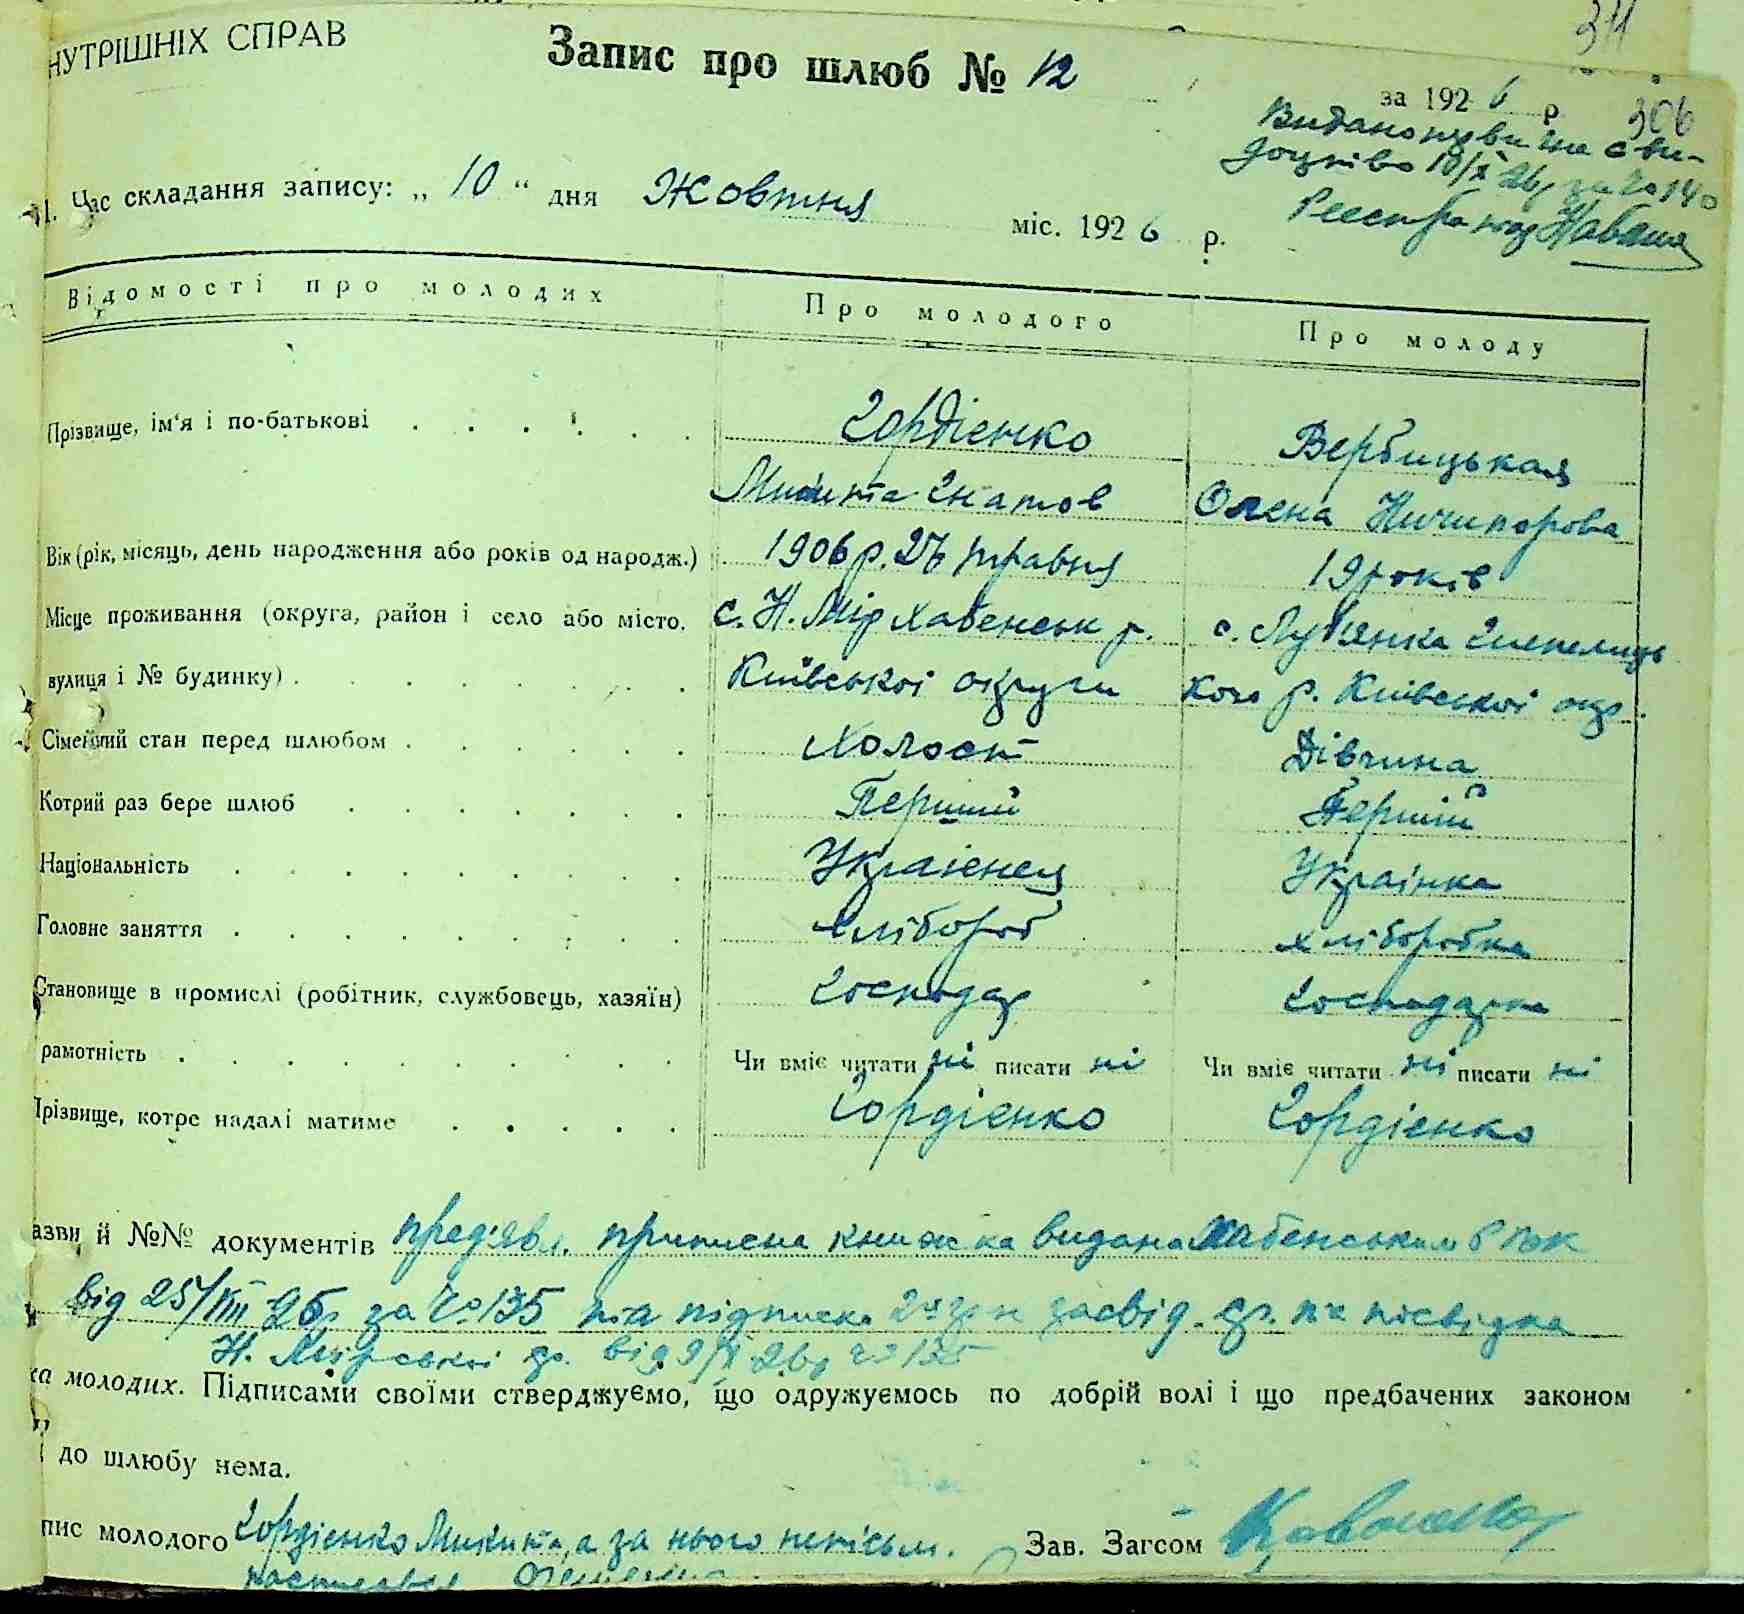 311
НУТРІШНІХ СПРАВ
Запис про шлюб № 12
за 1926 р.
306
Видано
доцтво 10/X 26р за № 140
1. Час складання запису: „ 10 “ дня Жовтня міс. 1926 р.
Відомості про молодих Про молодого Про молоду
Прізвище, ім'я і по-батькові Гордієнко Вербицькая
Микита Гнатов Олена Ничипорова
Вік (рік, місяць, день народження або років од народж.) 1906 р. 27 травня 19 років
Місце проживання (округа, район і село або місто, с. Н. Мір Хабенськ р. с. Луб'янка Шепелиць
вулиця і № будинку) Київськоі округи кого р. Київськоі окр.
Сімейний стан перед шлюбом Холост Дівчина
Котрий раз бере шлюб Перший Перший
Національність Українец Українка
Головне заняття хлібороб хліборобка
Становище в промислі (робітник, службовець, хазяїн) Господар Господарка
рамотність Чи вміє читати ні писати ні Чи вміє читати ні писати ні
Прізвище, котре надалі матиме Гордієнко Гордієнко
азви й №№ документів пред'явл. приписна книжка видана Хабенським РВК
від 25/VIII 26р за № 135 та підписка засвід. та посвідка
Н. Мірськоі від 9/X 26р № 135
ка молодих. Підписами своїми стверджуємо, що одружуємось по добрій волі і що предбачених законом
до шлюбу нема.
пис молодого Гордієнко Микита, а за нього неписьм. Зав. Загсом